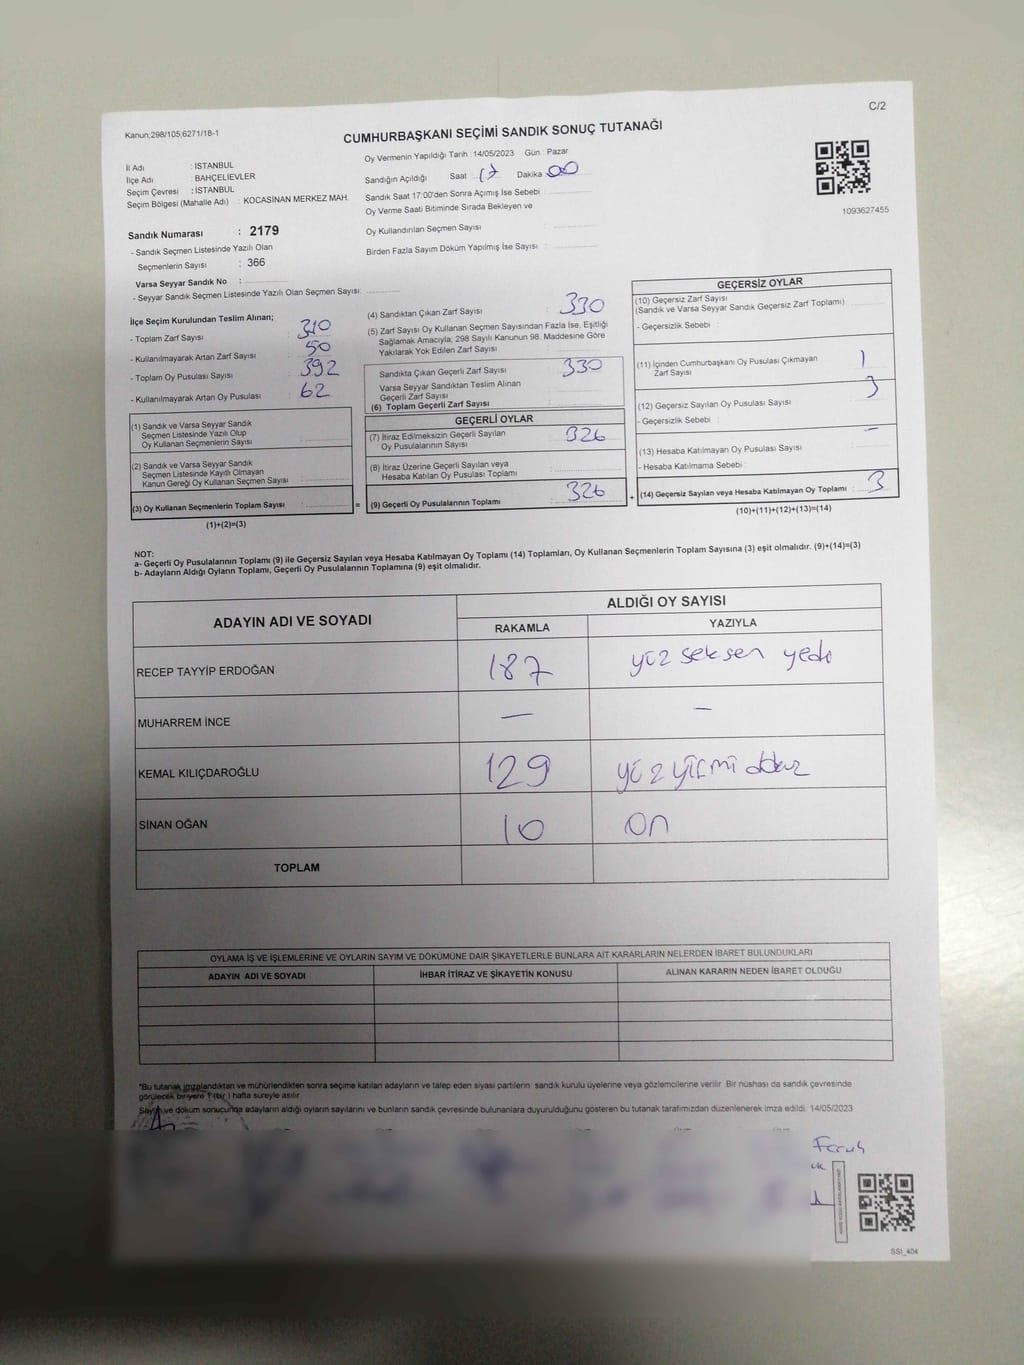 C/2
Kanun;298/105;6271/18-1
CUMHURBAŞKANI SEÇİMİ SANDIK SONUÇ TUTANAĞI
İl Adı : İSTANBUL
İlçe Adı : BAHÇELİEVLER
Seçim Çevresi : İSTANBUL
Seçim Bölgesi (Mahalle Adı) : KOCASİNAN MERKEZ MAH.
Oy Vermenin Yapıldığı Tarih : 14/05/2023 Gün : Pazar
Sandığın Açıldığı Saat 17 Dakika 00
Sandık Saat 17:00'den Sonra Açımış İse Sebebi :
Oy Verme Saati Bitiminde Sırada Bekleyen ve
Oy Kullandırılan Seçmen Sayısı :
Birden Fazla Sayım Döküm Yapılmış İse Sayısı :
1093627455
Sandık Numarası : 2179
- Sandık Seçmen Listesinde Yazılı Olan
Seçmenlerin Sayısı : 366
Varsa Seyyar Sandık No :
- Seyyar Sandık Seçmen Listesinde Yazılı Olan Seçmen Sayısı:
İlçe Seçim Kurulundan Teslim Alınan;
- Toplam Zarf Sayısı : 310
- Kullanılmayarak Artan Zarf Sayısı : 50
- Toplam Oy Pusulası Sayısı : 392
- Kullanılmayarak Artan Oy Pusulası : 62
(1) Sandık ve Varsa Seyyar Sandık
Seçmen Listesinde Yazılı Olup
Oy Kullanan Seçmenlerin Sayısı :
(2) Sandık ve Varsa Seyyar Sandık
Seçmen Listesinde Kayıtlı Olmayan
Kanun Gereği Oy Kullanan Seçmen Sayısı :
(3) Oy Kullanan Seçmenlerin Toplam Sayısı :
(1)+(2)=(3)
=
(4) Sandıktan Çıkan Zarf Sayısı : 330
(5) Zarf Sayısı Oy Kullanan Seçmen Sayısından Fazla İse, Eşitliği
Sağlamak Amacıyla; 298 Sayılı Kanunun 98. Maddesine Göre
Yakılarak Yok Edilen Zarf Sayısı :
Sandıkta Çıkan Geçerli Zarf Sayısı : 330
Varsa Seyyar Sandıktan Teslim Alınan
Geçerli Zarf Sayısı :
(6) Toplam Geçerli Zarf Sayısı :
GEÇERLİ OYLAR
(7) İtiraz Edilmeksizin Geçerli Sayılan
Oy Pusulasının Sayısı : 326
(8) İtiraz Üzerine Geçerli Sayılan veya
Hesaba Katılan Oy Pusulası Toplamı :
(9) Geçerli Oy Pusulalarının Toplamı : 326
+
GEÇERSİZ OYLAR
(10) Geçersiz Zarf Sayısı
(Sandık ve Varsa Seyyar Sandık Geçersiz Zarf Toplamı)
- Geçersizlik Sebebi :
(11) İçinden Cumhurbaşkanı Oy Pusulası Çıkmayan
Zarf Sayısı : 1
(12) Geçersiz Sayılan Oy Pusulası Sayısı : 3
- Geçersizlik Sebebi :
(13) Hesaba Katılmayan Oy Pusulası Sayısı : —
- Hesaba Katılmama Sebebi :
(14) Geçersiz Sayılan veya Hesaba Katılmayan Oy Toplamı : 3
(10)+(11)+(12)+(13)=(14)
NOT:
a- Geçerli Oy Pusulalarının Toplamı (9) ile Geçersiz Sayılan veya Hesaba Katılmayan Oy Toplamı (14) Toplamları, Oy Kullanan Seçmenlerin Toplam Sayısına (3) eşit olmalıdır. (9)+(14)=(3)
b- Adayların Aldığı Oyların Toplamı, Geçerli Oy Pusulalarının Toplamına (9) eşit olmalıdır.
ADAYIN ADI VE SOYADI
ALDIĞI OY SAYISI
RAKAMLA YAZIYLA
RECEP TAYYİP ERDOĞAN 187 yüz seksen yedi
MUHARREM İNCE — —
KEMAL KILIÇDAROĞLU 129 yüz yirmi dokuz
SİNAN OĞAN 10 on
TOPLAM
OYLAMA İŞ VE İŞLEMLERİNE VE OYLARIN SAYIM VE DÖKÜMÜNE DAİR ŞİKAYETLERLE BUNLARA AİT KARARLARIN NELERDEN İBARET BULUNDUKLARI
ADAYIN ADI VE SOYADI İHBAR İTİRAZ VE ŞİKAYETİN KONUSU ALINAN KARARIN NEDEN İBARET OLDUĞU
*Bu tutanak imzalandıktan ve mühürlendikten sonra seçime katılan adayların ve talep eden siyasi partilerin sandık kurulu üyelerine veya gözlemcilerine verilir. Bir nüshası da sandık çevresinde
görülecek bir yere 1 (bir) hafta süreyle asılır.
Sayım ve döküm sonucunda adayların aldığı oyların sayılarını ve bunların sandık çevresinde bulunanlara duyurulduğunu gösteren bu tutanak tarafımızdan düzenlenerek imza edildi. 14/05/2023
SSI_404